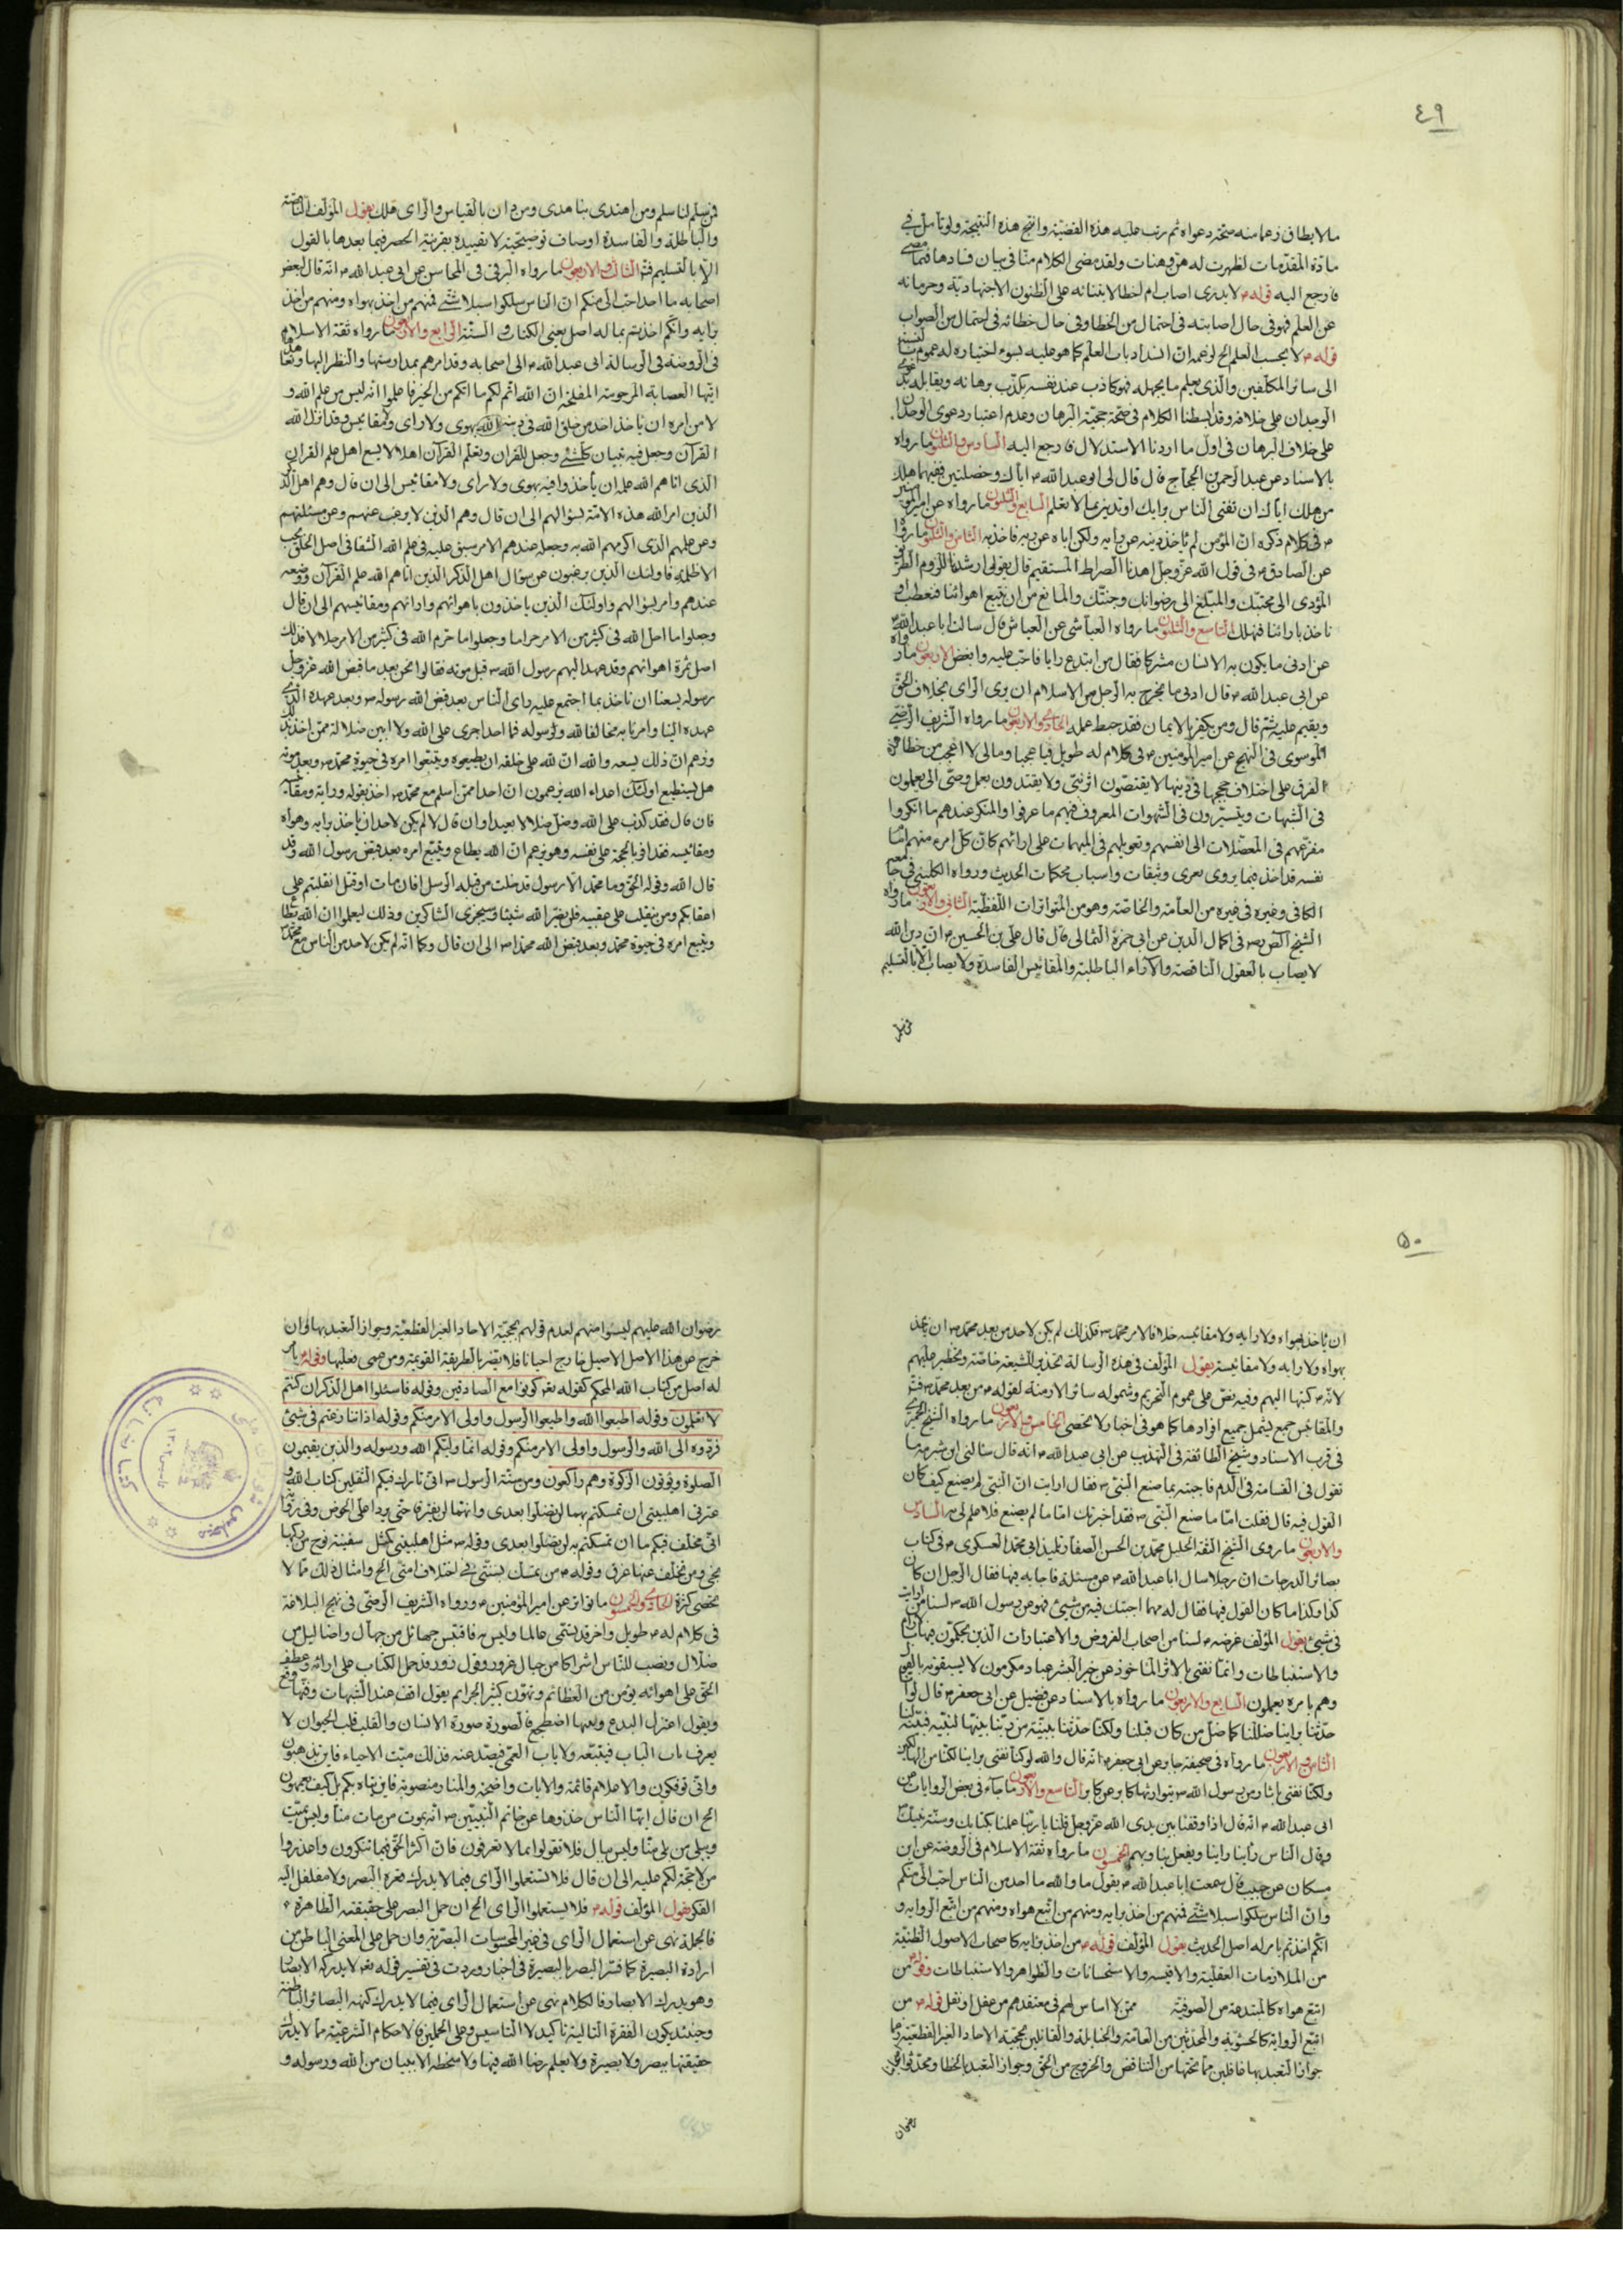 ٤٩
مالا يطاق زعما منه صحّة دعواه ثم رتب عليه هذه القضيّة وانتج هذه النتيجة ولو تأمل في
مادّة المقدّمات لظهرت له هن وهنات ولقد مضى الكلام منّا في بيان فسادها فيما مضى
فارجع اليه قوله لا يدرى اصاب ام اخطا لابتنائه على الظنون الاجتهاديّة وحرمانه
عن العلم فهو في حال اصابته في احتمال من الخطا وفي حال خطائه في احتمال من الصواب
قوله لا يحسب العلم الخ لزعمه انّ انسداد باب العلم كما هو عليه بسوء اختياره له عموم
الى سائر المكلّفين والّذى يعلم ما يجهله فهو كاذب عند نفسه يكذّب برهانه ويقابله
الوجدان على خلافه وقد بسطنا الكلام في صحّة حجيّة البرهان وعدم اعتبار دعوى الوجدان
على خلاف البرهان في اوّل ما اردنا الاستدلال فارجع اليه السادس والثلثون ما رواه
بالاسناد عن عبد الرحمن بن الحجّاج قال قال لى ابو عبد الله اياك وخصلتين ففيهما هلك
من هلك اياك ان تفتى الناس برايك او تدين بما لا تعلم السابع والثلثون ما رواه عن امير المؤمنين
في كلام ذكره انّ المؤمن لم ياخذ دينه عن رايه ولكن اتاه عن ربه فاخذ به الثامن والثلثون ما رواه
عن الصادق في قول الله عزّ وجل اهدنا الصراط المستقيم قال يقول ارشدنا للزوم الطريق
المؤدى الى محبّتك والمبلّغ الى رضوانك وجنّتك والمانع من ان نتبع اهوائنا فنعطب او
ناخذ بارائنا فنهلك التاسع والثلثون ما رواه العياشى عن العياش قال سالت ابا عبد الله
عن ادنى ما يكون به الانسان مشركا فقال من ابتدع رايا فاحبّ عليه وابغض الاربعون ما رواه
عن ابى عبد الله قال ادنى ما يخرج به الرجل من الاسلام ان يرى الراى بخلاف الحق
ويقيم عليه ثم قال ومن يكفر بالايمان فقد حبط عمله الحادى والاربعون ما رواه الشريف الرضى
الموسوى في النهج عن امير المؤمنين في كلام له طويل فيا عجبا وما لى لا اعجب من خطا هذه
الفرق على اختلاف حججها في دينها لا يقتصّون اثر نبىّ ولا يقتدون بعمل وصىّ الى يعملون
في الشبهات ويسيرون في الشهوات المعروف فيهم ما عرفوا والمنكر عندهم ما انكروا
مفزعهم في المعضلات الى انفسهم وتعويلهم في المبهمات على ارائهم كانّ كلّ امرء منهم امام
نفسه قد اخذ فيما يرى بعرى وثيقات واسباب محكمات الحديث ورواه الكلينى في جامعه
الكافى وغيره في غيره من العامّة والخاصّة وهو من المتواترات اللفظيّة الثانى والاربعون ما رواه
الشيخ الصدوق في اكمال الدين عن ابى حمزة الثمالى قال قال على بن الحسين انّ دين الله
لا يصاب بالعقول الناقصة والآراء الباطلة والمقائيس الفاسدة ولا يصاب الّا بالتسليم
فمن سلّم
فمن سلّم لنا سلم ومن اهتدى بنا هدى ومن دان بالقياس والراى هلك يقول المؤلّف الناقصة
والباطلة والفاسدة اوصاف توضيحيّة لا تقييديه بقرينة الحصر فيما بعدها بالقول
الّا بالتسليم فتد الثالث والاربعون ما رواه البرقى في المحاسن عن ابى عبد الله انّه قال لبعض
اصحابه ما احد احبّ الىّ منكم انّ الناس سلكوا سبلا شتّى فمنهم من اخذ بهواه ومنهم من اخذ
برايه وانّكم اخذتم بما له اصل يعنى الكتاب والسنّة الرابع والاربعون ما رواه ثقة الاسلام
في الروضة في الرسالة ابى عبد الله الى اصحابه وقد امرهم بمدارستها والنظر اليها وتعاهدها
ايّتها العصابة المرحومة المفلحة انّ الله اتمّ لكم ما اتاكم من الخير فاعلموا انّه ليس من علم الله و
لا من امره ان ياخذ احد من خلق الله في دينه بهوى ولا راى ولا مقائيس وقد انزل الله
القرآن وجعل فيه تبيان كلّ شئ وجعل للقرآن ويعلم القرآن اهلا لا يسع اهل علم القرآن
الذى اتاهم الله علمه ان ياخذوا فيه بهوى ولا راى ولا مقائيس الى ان قال وهم اهل الذكر
الذين امر الله هذه الامّة بسؤالهم الى ان قال وهم الذين لا يرغب عنهم وعن مسئلتهم
وعن علمهم الذى اكرمهم الله به وجعله عندهم الا من سبق عليه في علم الله الشقا في اصل الخلق تحت
الاظلّة فاولئك الذين يرغبون عن سؤال اهل الذكر الذين اتاهم الله علم القرآن ووضعه
عندهم وامر بسؤالهم واولئك الذين ياخذون باهوائهم وارائهم ومقائيسهم الى ان قال
وجعلوا ما احل الله في كثير من الامر حراما وجعلوا ما حرّم الله في كثير من الامر حلالا فذلك
اصل ثمرة اهوائهم وقد عهد اليهم رسول الله قبل موته فقالوا نحن بعد ما قبض الله عزّ وجل
رسوله يسعنا ان ناخذ بما اجتمع عليه راى الناس بعد قبض الله رسوله وبعد عهده الذى
عهده الينا وامرنا به مخالفا لله ولرسوله فما احد اجرى على الله ولا ابين ضلالة ممّن اخذ بذلك
وزعم انّ ذلك يسعه والله انّ لله على خلقه ان يطيعوه ويتّبعوا امره في حيوة محمد وبعد موته
هل يستطيع اولئك اعداء الله يزعمون انّ احدا ممّن اسلم مع محمد اخذ بقوله ورايه ومقائيسه
فان قال فقد كذب على الله وضلّ ضلالا بعيدا وان قال لا لم يكن لاحد ان ياخذ برايه وهواه
ومقائيسه فقد اقرّ بالحجة على نفسه وهو يزعم انّ الله يطاع ويتبع امره بعد قبض رسول الله وقد
قال الله وقوله الحقّ وما محمد الّا رسول قد خلت من قبله الرسل افان مات او قتل انقلبتم على
اعقابكم ومن ينقلب على عقبيه فلن يضرّ الله شيئا وسيجزى الشاكرين وذلك ليعلموا انّ الله يطاع
ويتبع امره في حيوة محمد وبعد قبض الله محمدا الى ان قال وكما انّه لم يكن لاحد من الناس مع محمد
٥٠
ان ياخذ بهواه ولا رايه ولا مقائيسه خلافا لامر محمد فكذلك لم يكن لاحد من بعد محمد ان ياخذ
بهواه ولا رايه ولا مقائيسه يقول المؤلّف في هذه الرسالة تحذير للشيعة خاصّة وتحظير عليهم
لانّه كتبها اليهم وفيه نصّ على عموم التحريم وشموله سائر الازمنة لقوله من بعد محمد فتد
والمقائيس جمع ليشمل جميع افرادها كما هو في اخبار لا تحصى الخامس والاربعون ما رواه الشيخ الحميرى
في قرب الاسناد وشيخ الطائفة في التهذيب عن ابى عبد الله انه قال سالنى ابن شبرمة ما
تقول في القسامة في الدم فاجبته بما صنع النبى فقال ارايت انّ النبى لم يصنع كيف كان
القول فيه قال فقلت امّا ما صنع النبى فقد اخبرتك امّا ما لم يصنع فلا علم لى به السادس
والاربعون ما روى الشيخ الثقة الجليل محمد بن الحسن الصفار تلميذ ابى محمد العسكرى في كتاب
بصائر الدرجات انّ رجلا سال ابا عبد الله عن مسئلة فاجابه فيها فقال الرجل ان كان
كذا وكذا ما كان القول فيها فقال له مهما اجبتك فيه من شئ فهو عن رسول الله لسنا من ارايت
في شئ يقول المؤلّف غرضه لسنا من اصحاب الفروض والاعتبارات الذين يحكمون فيها بالآراء
والاستنباطات وانّما نفتى بالاثر الماخوذ عن خير البشر عباد مكرمون لا يسبقونه بالقول
وهم بامره يعملون السابع والاربعون ما رواه بالاسناد عن فضيل عن ابى جعفر قال لو انّا
حدّثنا براينا ضللنا كما ضلّ من كان قبلنا ولكنّا حدّثنا ببيّنة من ربّنا بيّنها لنبيّه فبيّنه لنا
الثامن والاربعون ما رواه في صحيفة جابر عن ابى جعفر انه قال والله لو كنّا نفتى براينا لكنّا من الهالكين
ولكنّا نفتى باثار من رسول الله نتوارثها كابر عن كابر التاسع والاربعون ما جاء في بعض الروايات عن
ابى عبد الله انّه قال اذا وقفنا بين يدى الله عزّ وجل قلنا يا ربّنا عملنا بكتابك وسنّة نبيّك
وقال الناس راينا راينا ويفعل بنا وبهم الخمسون ما رواه ثقة الاسلام في الروضة عن ابن
مسكان عن حبيب قال سمعت ابا عبد الله يقول ما والله ما احد من الناس احبّ الىّ منكم
وانّ الناس سلكوا سبلا شتّى فمنهم من اخذ برايه ومنهم من اتّبع هواه ومنهم من اتّبع الروايه و
انّكم اخذتم بامر له اصل الحديث يقول المؤلّف قوله من اخذ برايه كاصحاب الاصول الظنيّة
من الملازمات العقليّة والاقيسه والاستحسانات والظواهر والاستنباطات وقوله من
اتبع هواه كالمبتدعة من الصوفيّة ممّن لا اساس لهم في معتقدهم من عقل او نقل قوله من
اتّبع الرواية كالحشويّة والمحدّثين من العامّة والحنابلة والقائلين بحجيّة الاحاد الغير القطعيّة وما
جواز التعبد بها غافلين عمّا تحتها من التناقض والخروج من الحقّ وجواز التعبد بالخطا ومحدّثوا
رضوان
رضوان الله عليهم ليسوا منهم لعدم قولهم بحجيّة الاحاد الغير القطعيّة وجواز التعبد بها وان
خرج عن هذا الاصل الاصيل خارج احيانا فلا يضرّ بالطريقة القويمة ومن عصى فعليها وقوله بامر
له اصل من كتاب الله المحكم كقوله تعه كونوا مع الصادقين وقوله فاسئلوا اهل الذكر ان كنتم
لا تعلمون وقوله اطيعوا الله واطيعوا الرسول واولى الامر منكم وقوله اذا تنازعتم في شئ
فردّوه الى الله والرسول واولى الامر منكم وقوله انّما وليّكم الله ورسوله والذين يقيمون
الصلوة ويؤتون الزكوة وهم راكعون ومن سنّة الرسول انّى تارك فيكم الثقلين كتاب الله و
عترتى اهلبيتى ان تمسكتم بهما لن تضلّوا بعدى وانهما لن يفترقا حتّى يردا على الحوض وفي رواية
انّى مخلّف فيكم ما ان تمسكتم به لن تضلّوا بعدى وقوله مثل اهلبيتى كمثل سفينة نوح من ركبها
نجى ومن تخلّف عنها غرق وقوله من تمسك بسنّتى في اختلاف امّتى الخ وامثال ذلك ممّا لا
تحصى كثرة الحادى والخمسون ما تواتر عن امير المؤمنين ورواه الشريف الرضى في نهج البلاغة
في كلام له طويل واخر قد يسمّى عالما وليس به فاقتبس جهائل من جهّال واضاليل من
ضلّال ونصب للنّاس اشراكا من حبال غرور وقول زور قد حمل الكتاب على ارائه وعطف
الحقّ على اهوائه يؤمن من العظائم ويهوّن كبير الجرائم يقول اقف عند الشبهات وفيها وقع
ويقول اعتزل البدع وبينها اضطجع فالصورة صورة الانسان والقلب قلب الحيوان لا
يعرف باب الباب فيتبعه ولا باب العمى فيصدّ عنه فذلك ميّت الاحياء فاين تذهبون
وانّى تؤفكون والاعلام قائمة والايات واضحة والمنار منصوبة فاين يتاه بكم بل كيف تعمهون
الخ ان قال ايّها الناس خذوها عن خاتم النبيّين انّه يموت من مات منّا وليس بميّت
ويبلى من بلى منّا وليس ببال فلا تقولوا بما لا تعرفون فانّ اكثر الحقّ فيما تنكرون واعذروا
من لا حجّة لكم عليه الى ان قال فلا تستعملوا الراى فيما لا يدرك قعره البصر ولا تغلغل اليه
الفكر يقول المؤلّف قوله فلا يستعملوا الراى الخ ان حمل البصر على حقيقته الظاهرة
فالجملة نهى عن استعمال الراى في غير المحسوسات البصريّة وان حمل على المعنى الباطن من
ارادة البصيرة كما فسّر البصر بالبصيرة في اخبار وردت في تفسير قوله تعه لا يدركه الابصار
وهو يدرك الابصار فالكلام نهى عن استعمال الراى فيما لا يدرك كنهه البصائر الباطنة
وحينئذ يكون الفقرة التالية تاكيدا لا التاسيس وعلى الحملين فالاحكام الشرعيّة ممّا لا يدرك
حقيقتها ببصر ولا بصيرة ولا يعلم رضا الله فيها ولا سخطه الا ببيان من الله ورسوله و